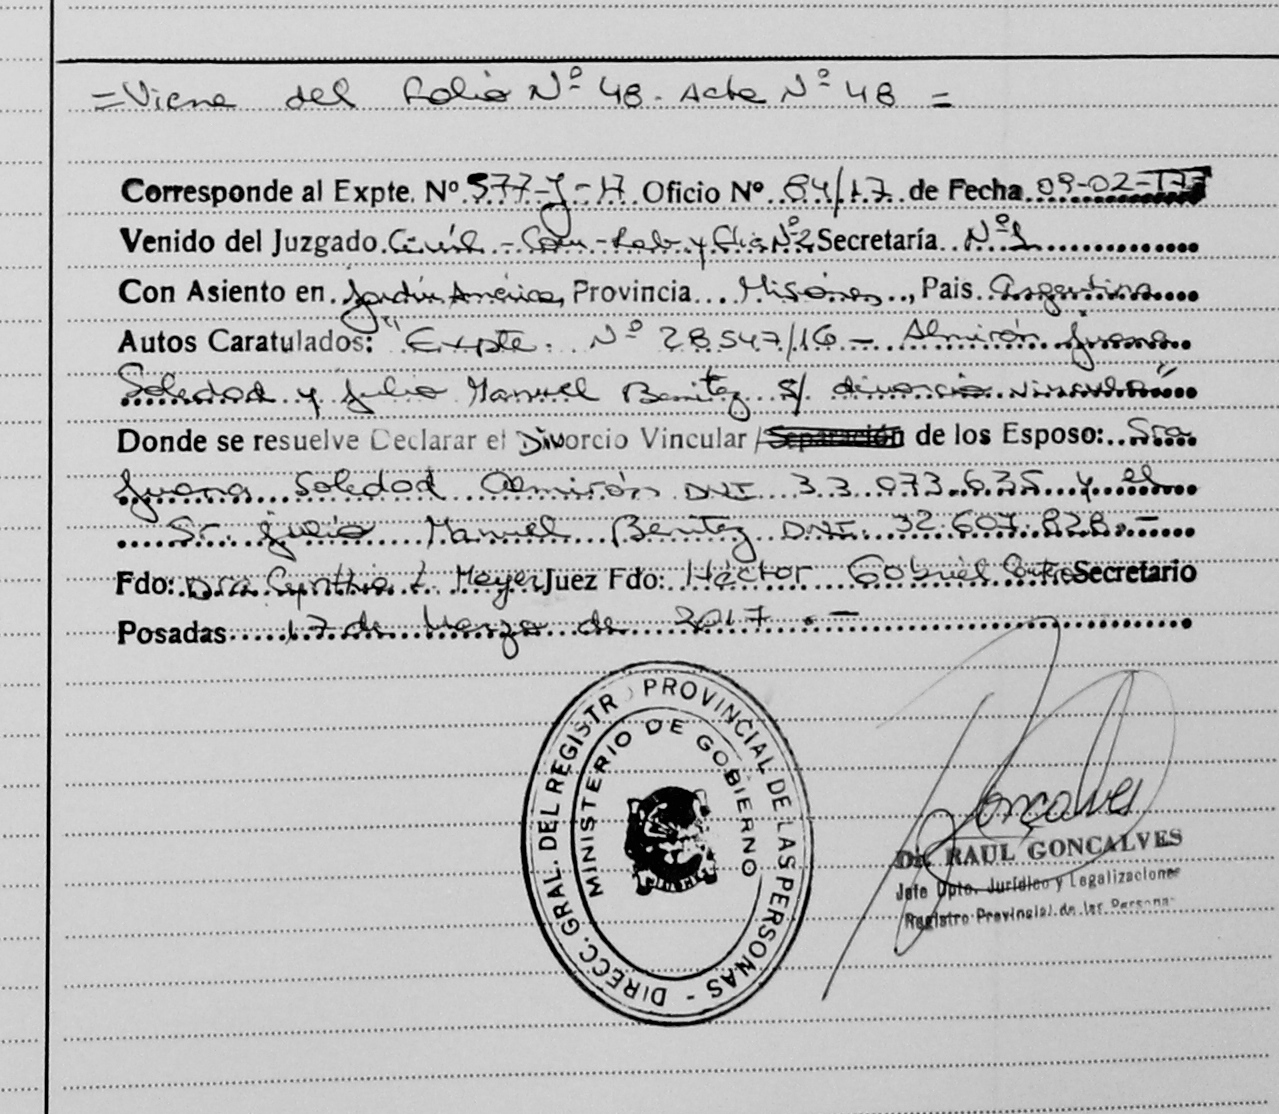 = Viene del Folio Nº 48. Acta Nº 48 =
Corresponde al Expte. Nº 577-J-17 Oficio Nº 84/17 de Fecha 09-02-17
Venido del Juzgado Civil - Com - Lab y Flia Nº2 Secretaría Nº1
Con Asiento en Jardín América, Provincia Misiones, Pais Argentina
Autos Caratulados: "Expte. Nº 28547/16 - Almirón Juana
Soledad y Julio Manuel Benitez s/ divorcio vincular"
Donde se resuelve Declarar el Divorcio Vincular / Separación de los Esposo: Sra
Juana Soledad Almirón DNI 33.073.635 y el
Sr. Julio Manuel Benitez DNI. 32.607.828.-
Fdo: Dra Cynthia L. Meyer Juez Fdo: Héctor Gabriel Secretario
Posadas 17 de Marzo de 2017.-
DIRECC. GRAL. DEL REGISTRO PROVINCIAL DE LAS PERSONAS -
MINISTERIO DE GOBIERNO
Goncalves
Dr. RAUL GONCALVES
Jefe Dpto. Jurídico y Legalizaciones
Registro Provincial de las Personas